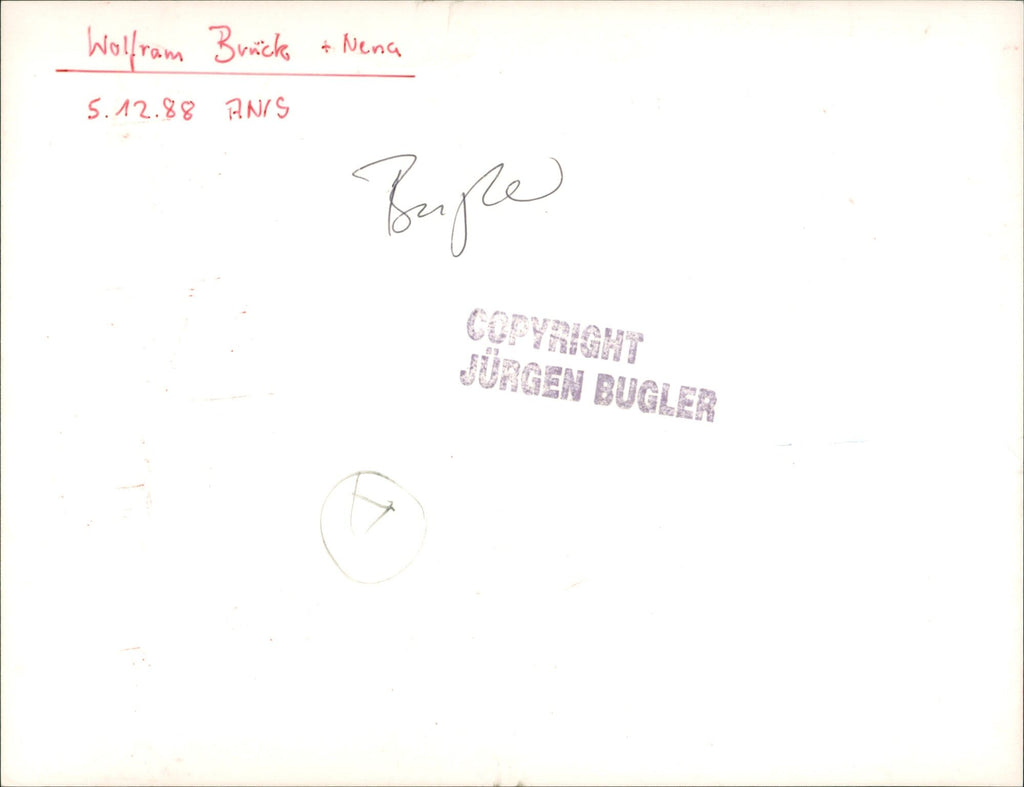 Wolfram Brück + Nena
5.12.88 ANS
Bugler
COPYRIGHT
JÜRGEN BUGLER